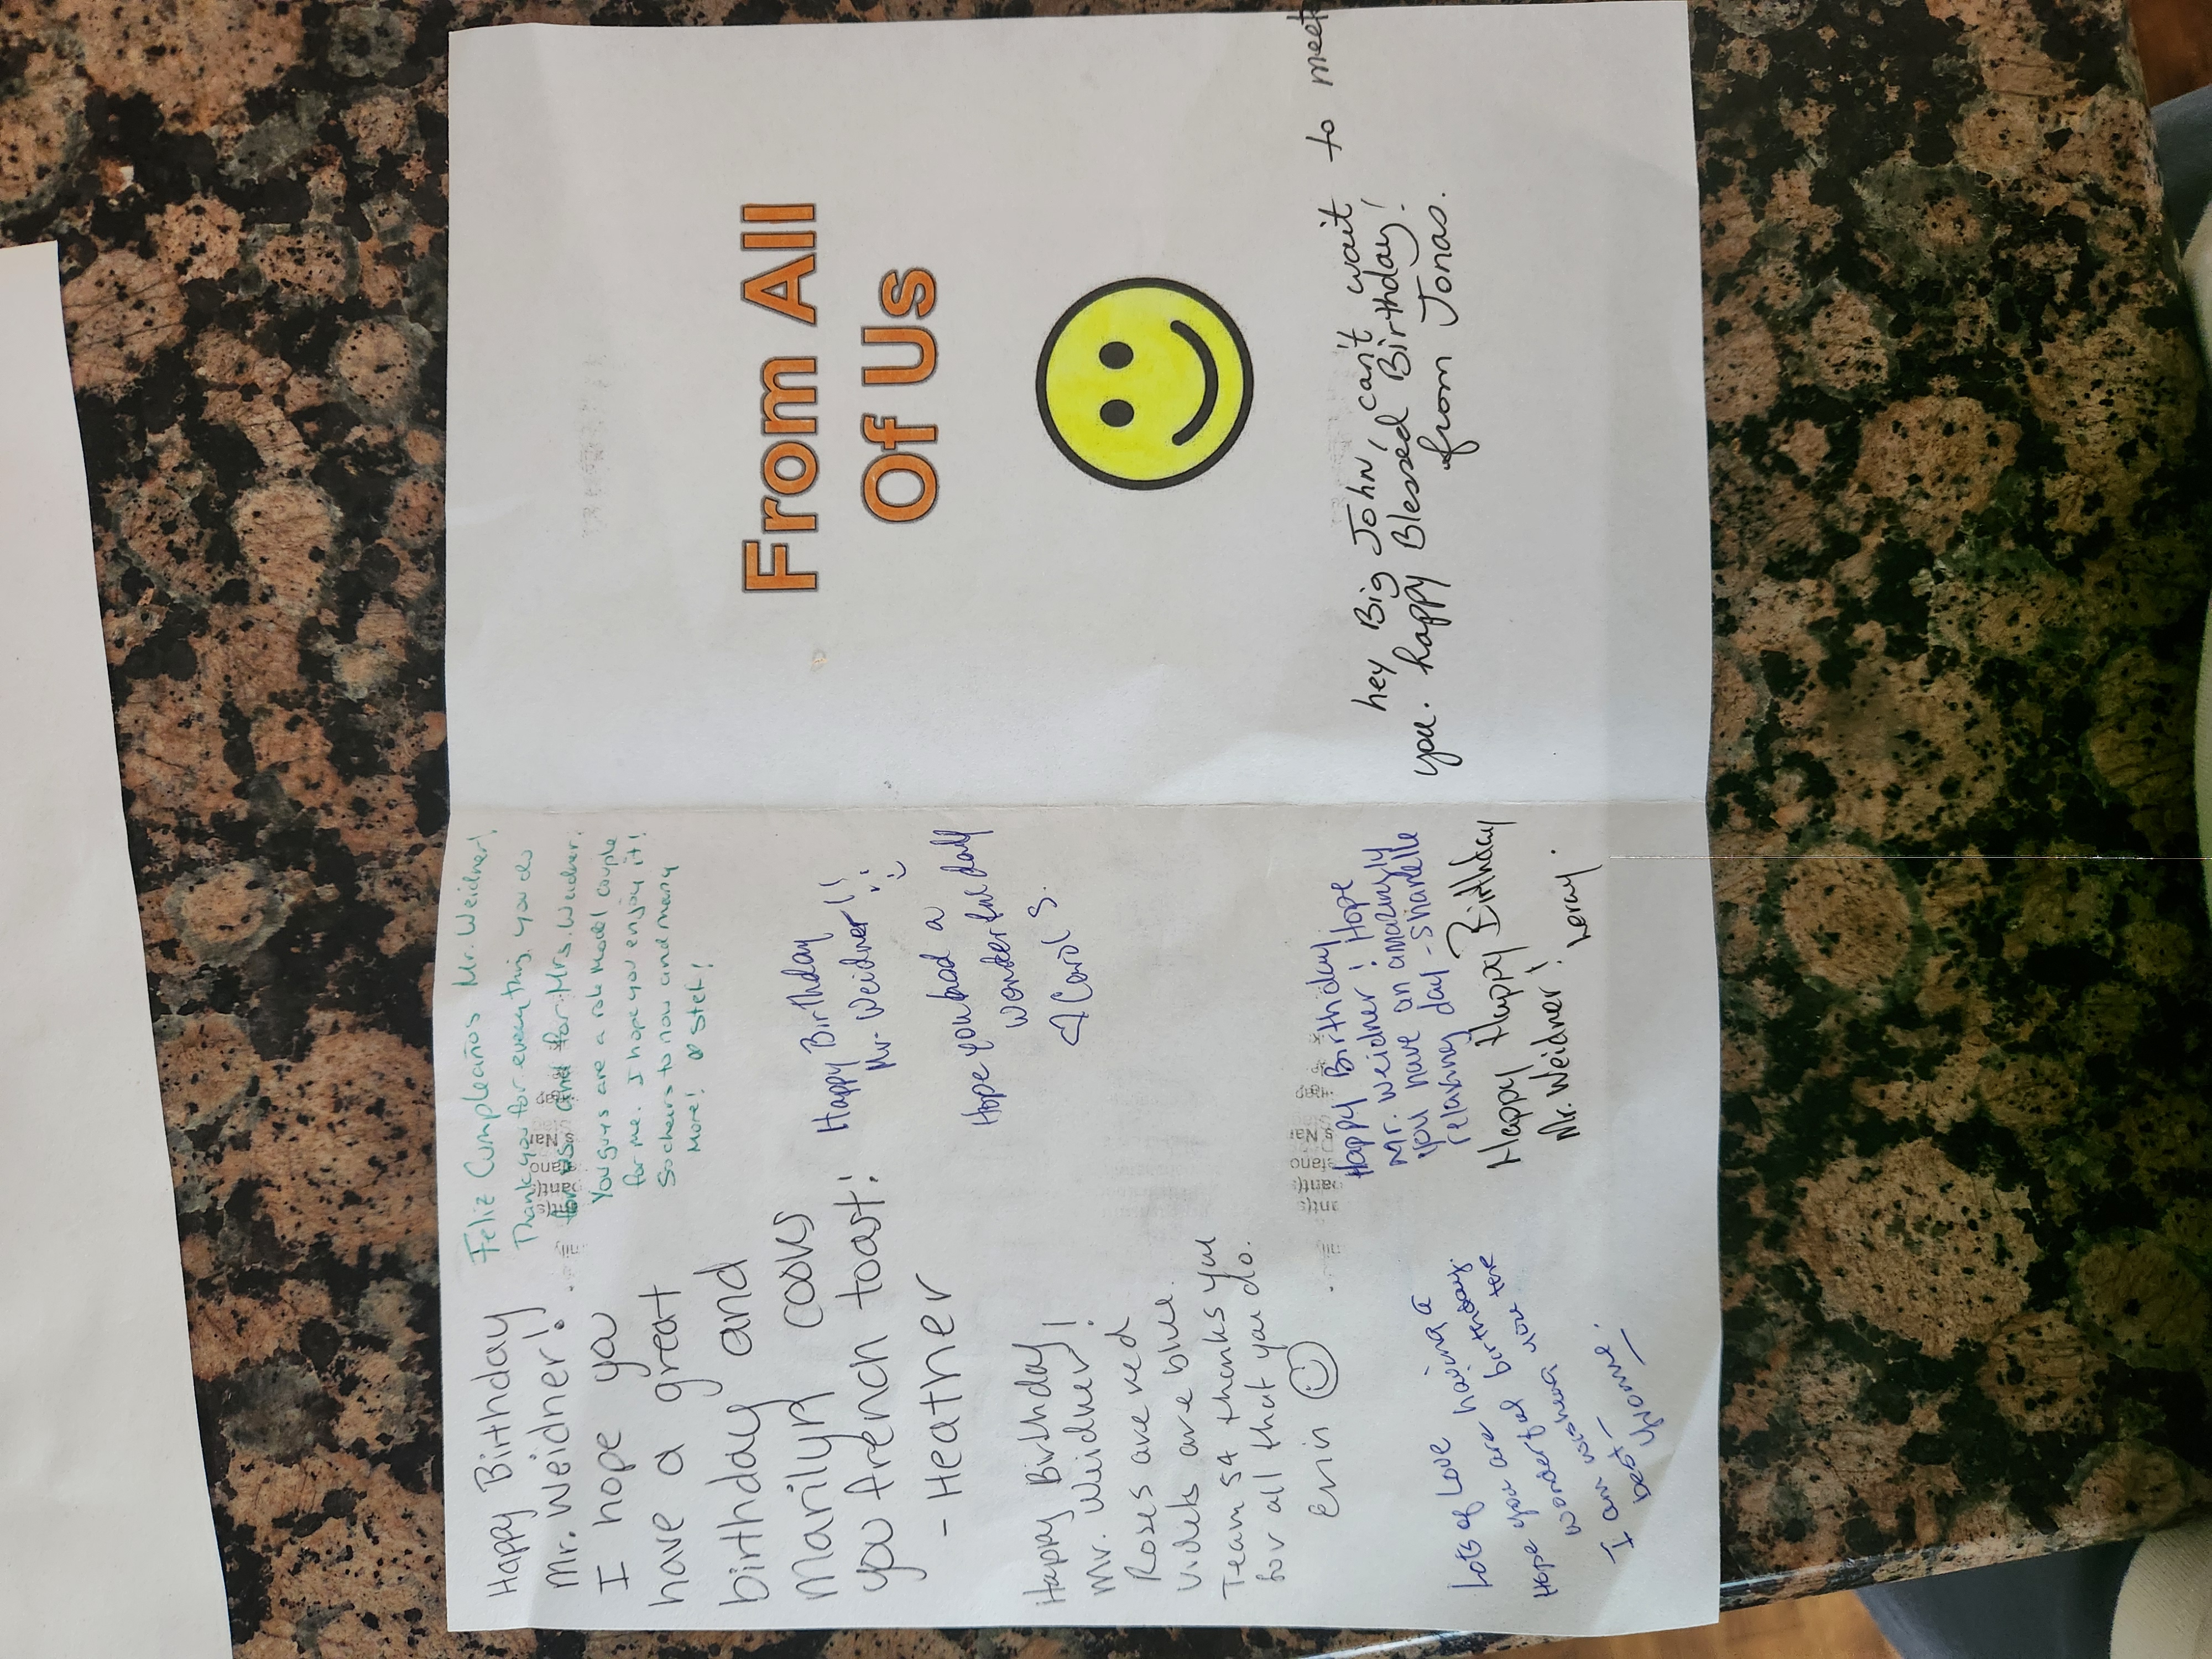 Happy Birthday
Mr. Weidner!
I hope you
have a great
birthday and
Marilyn cooks
you french toast!
- Heather
Feliz Cumpleaños Mr. Weidner!
Thank you for everything you do
for us and for Mrs. Weidner.
You guys are a role model couple
for me. I hope you enjoy it!
So cheers to now and many
More! Steh!
Happy Birthday
Mr. Weidner!!
Hope you had a
wonderful day
Carol S.
Happy Birthday
Mr. Weidner!
Roses are red
Violets are blue.
Team 54 thanks you
for all that you do.
Erin
Happy Birthday
Mr. Weidner! Hope
you have an amazingly
relaxing day - Shanelle
Happy Happy Birthday
Mr. Weidner!
Leray.
Lots of Love
Hope you are having a
wonderful birthday.
I am wishing you the
best -
Yvonne.
From All
Of Us
hey Big John, can't wait to meet
you. happy Blessed Birthday!
from Jonas.